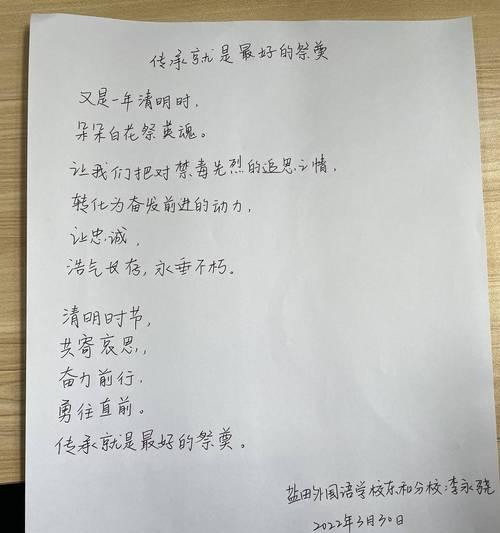 传承就是最好的祭奠
又是一年清明时,
朵朵白花祭英魂。
让我们把对禁毒先烈的追思之情,
转化为奋发前进的动力,
让忠诚,
浩气长存,永垂不朽。
清明时节,
共寄哀思,
奋力前行,
勇往直前。
传承就是最好的祭奠。
盐田外国语学校东和分校:李永骁
2022年3月30日